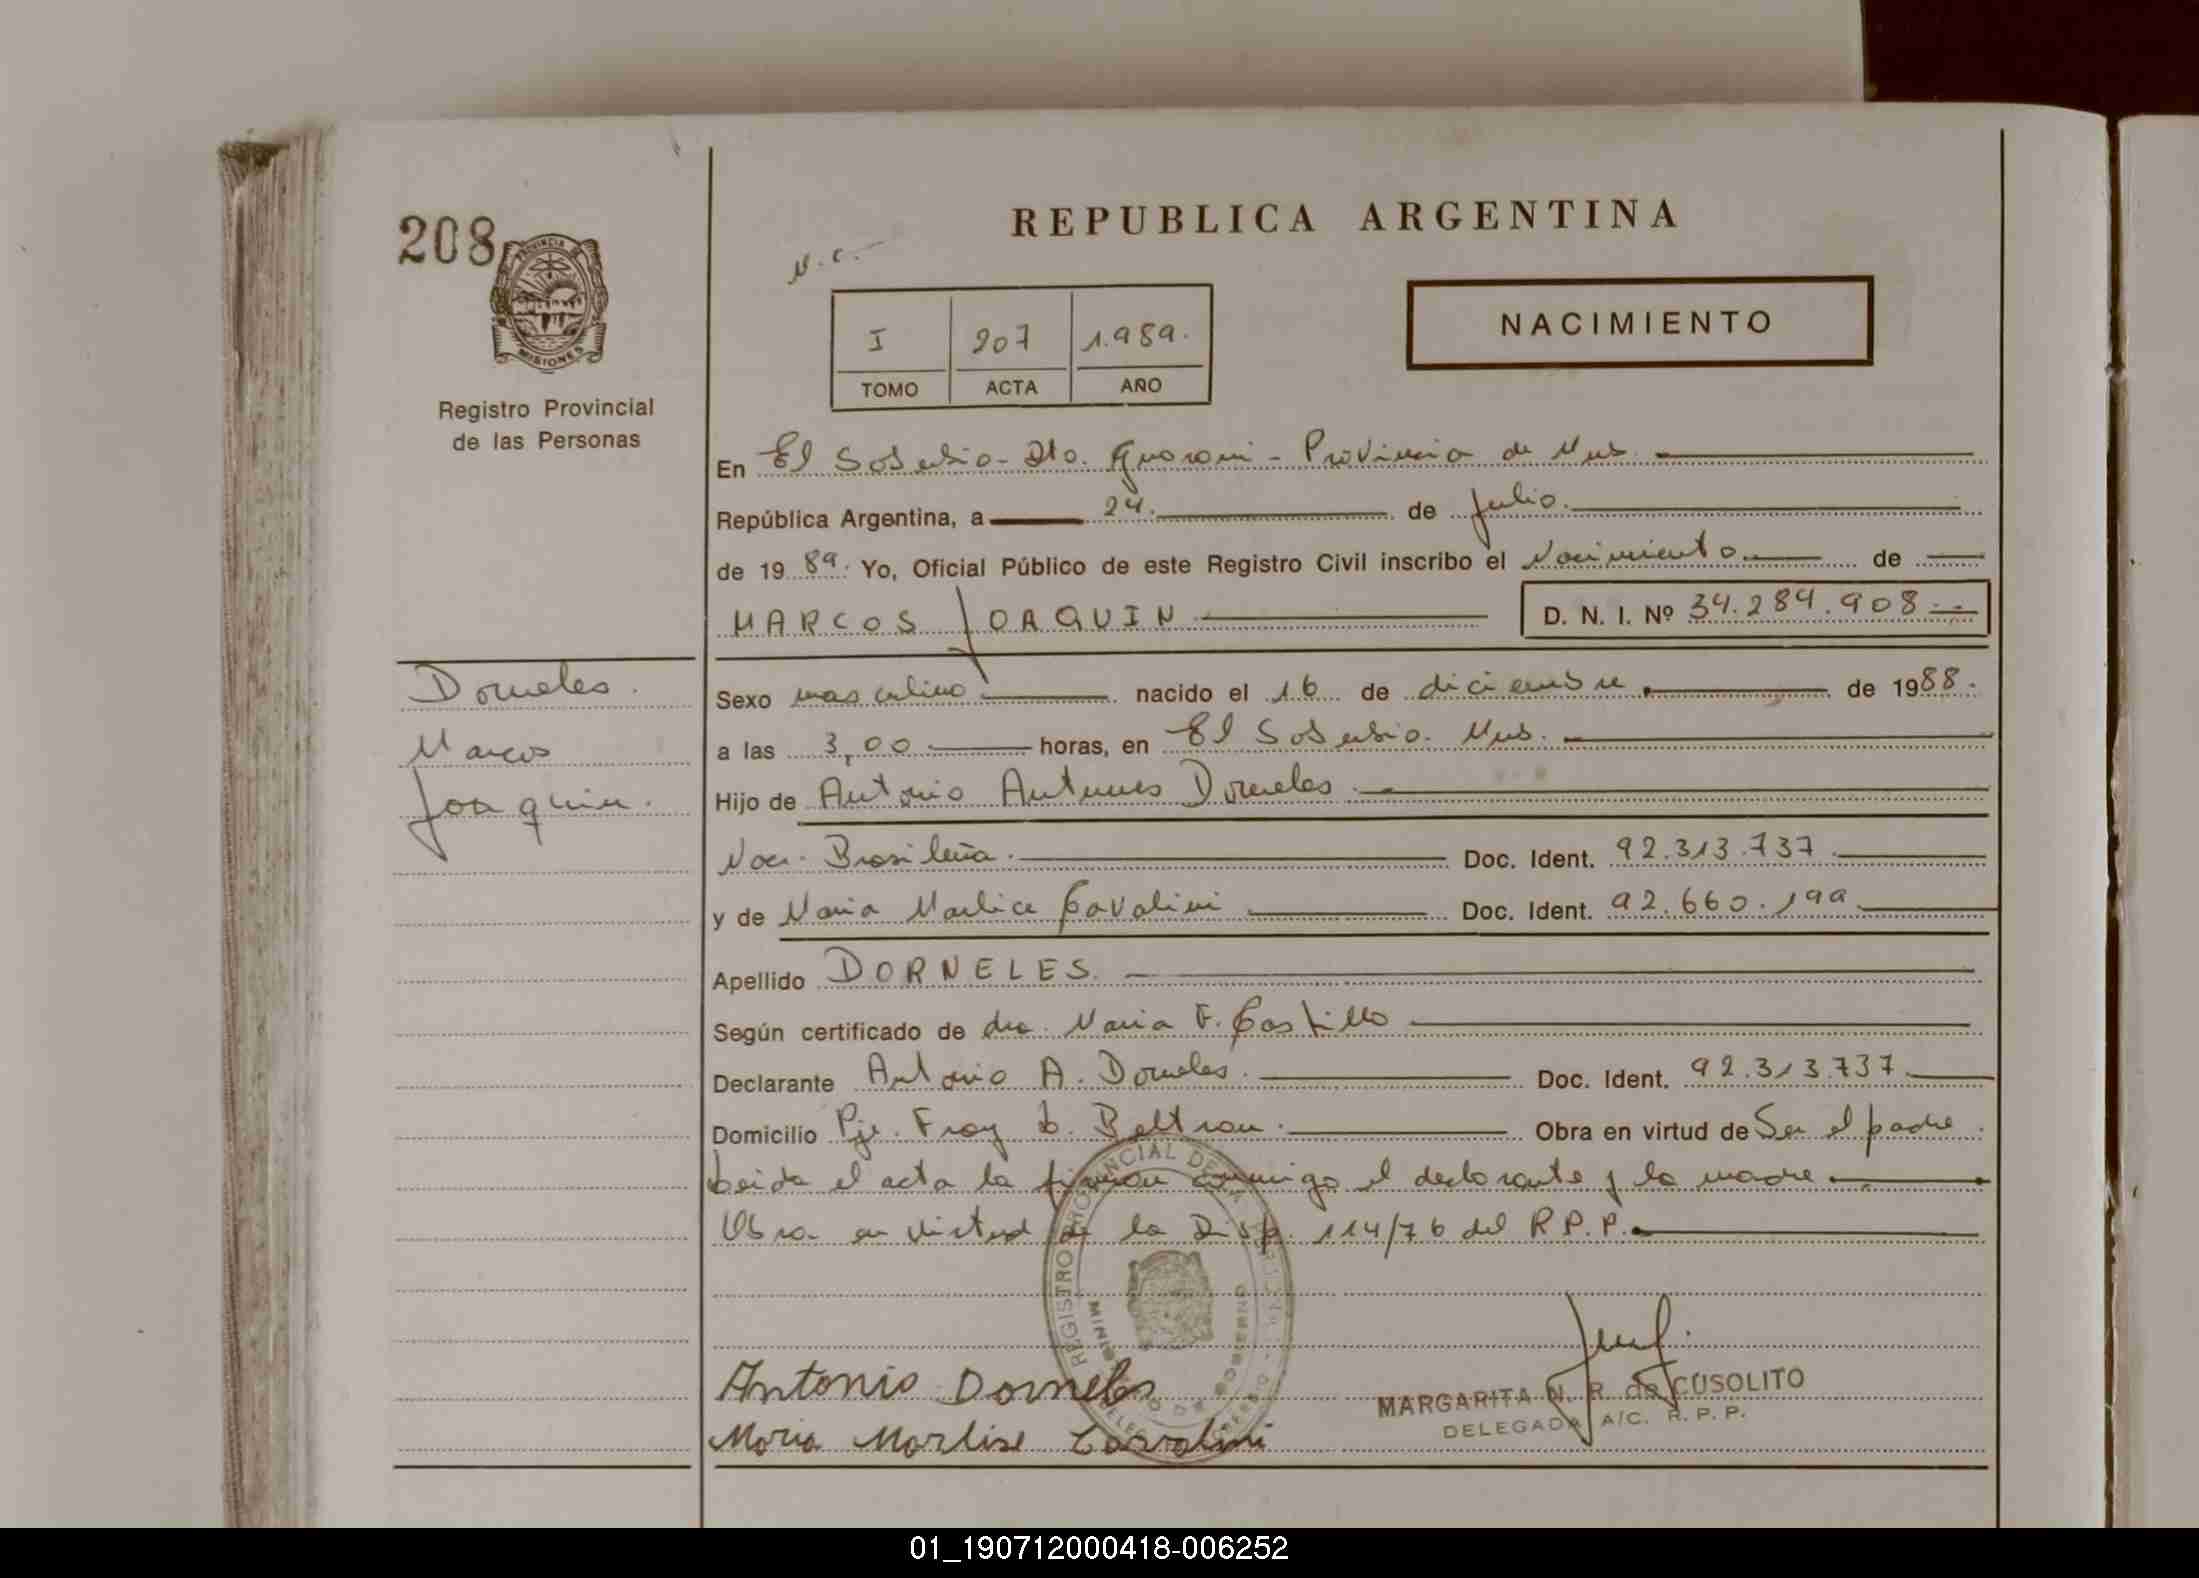 208
PROVINCIA DE
MISIONES
Registro Provincial
de las Personas
REPUBLICA ARGENTINA
N.C.
NACIMIENTO
I 207 1.989.
TOMO ACTA AÑO
En El Soberbio - Dto. Guarani - Provincia de Mns.
República Argentina, a 24. de Julio.
de 1989. Yo, Oficial Público de este Registro Civil inscribo el Nacimiento de
MARCOS JOAQUIN D. N. I. Nº 34.289.908.-
Dorneles.
Marcos
Joaquin.
Sexo masculino nacido el 16 de diciembre de 1988.
a las 3,00 horas, en El Soberbio. Mns.
Hijo de Antonio Antunes Dorneles.
Nac. Brasileña. Doc. Ident. 92.313.737
y de Maria Marlice Cavalini Doc. Ident. 92.660.199
Apellido DORNELES.
Según certificado de dra. Maria F. Castillo
Declarante Antonio A. Dorneles. Doc. Ident. 92.313.737
Domicilio Pje. Fray L. Beltran. Obra en virtud de Ser el padre.
Leida el acta la firman conmigo el declarante y la madre
Obra en virtud de la Disp. 114/76 del R.P.P.
REGISTRO PROVINCIAL DE
Antonio Dorneles
Maria Marlise Cavalini
MARGARITA N. R. de CUSOLITO
DELEGADA A/C. R. P. P.
01_190712000418-006252